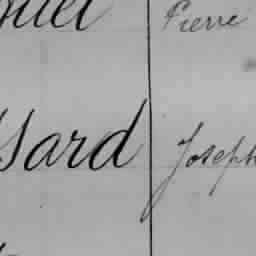 Pierre
sard Joseph